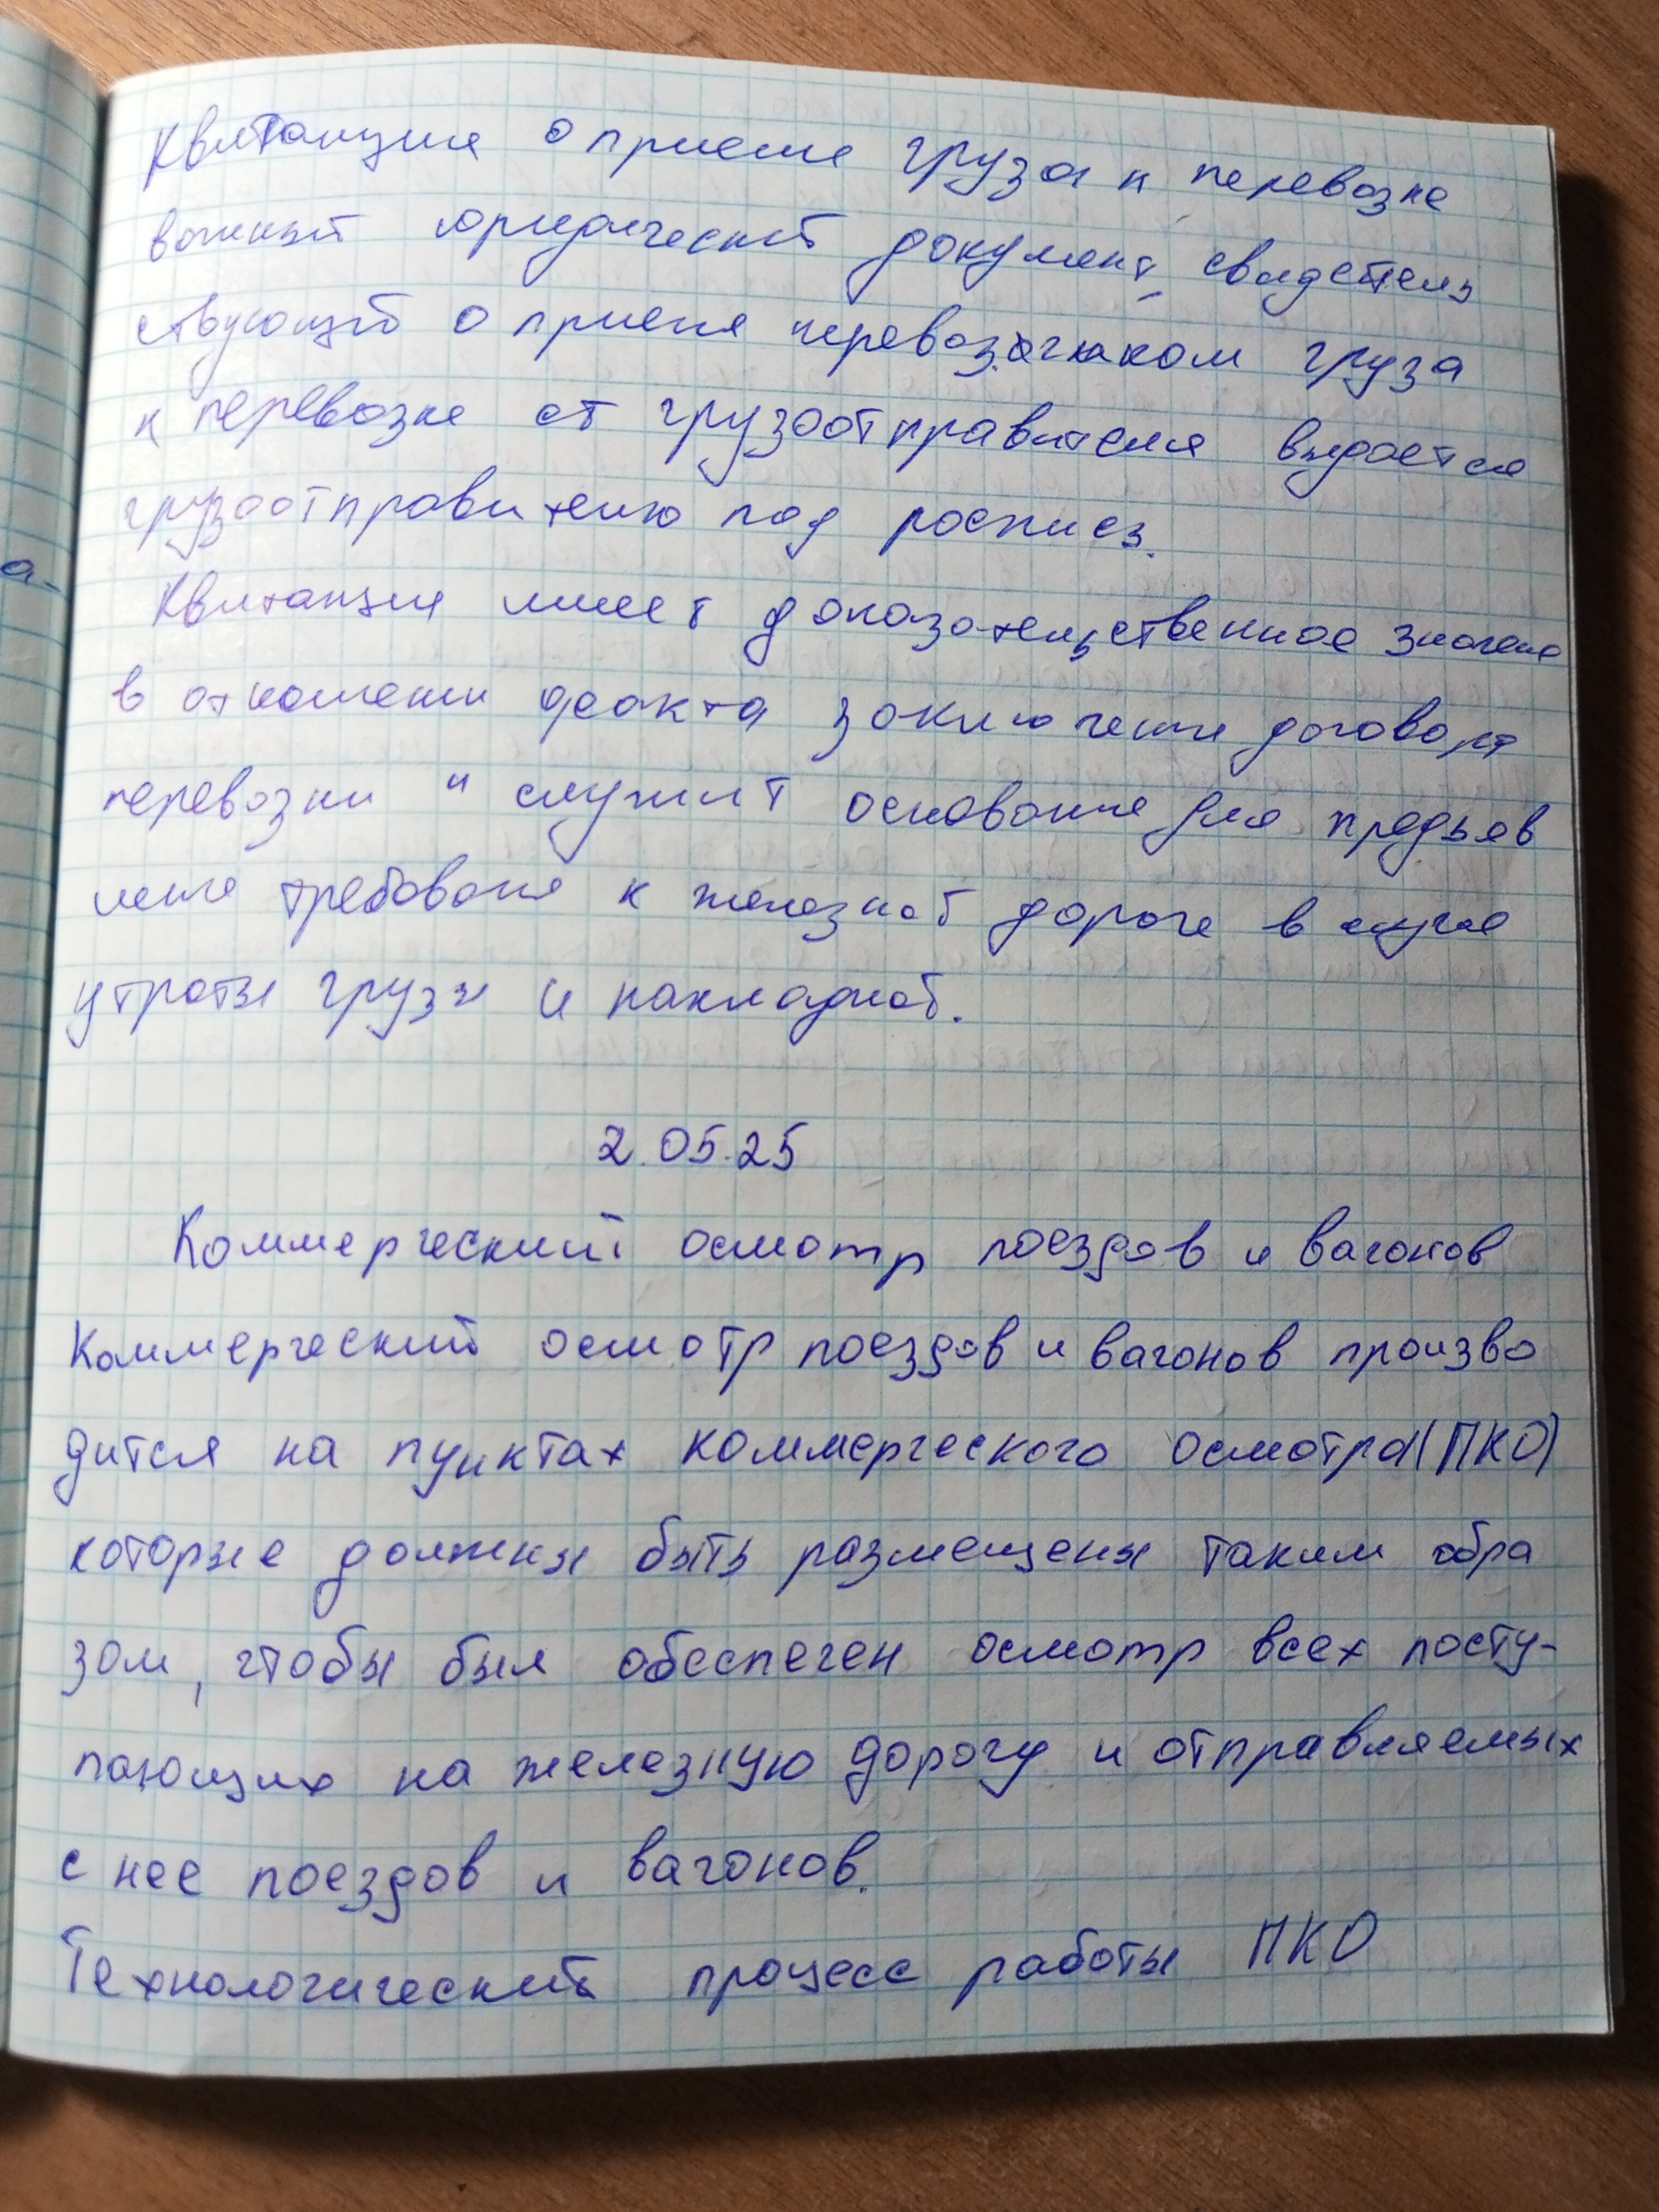 Квитанция о приеме груза к перевозке
важный юридический документ, свидетель
ствующий о приеме перевозчиком груза
к перевозке от грузоотправителя выдается
грузоотправителю под роспись.
Квитанция имеет доказательственное значение
в отношении факта заключение договора
перевозки и служит основание для предъяв
ление требование к железной дороге в случае
утраты грузы и накладной.
2.05.25
Коммерческий осмотр поездов и вагонов
Коммерческий осмотр поездов и вагонов произво
дится на пунктах коммерческого осмотра (ПКО)
которые должны быть размещены таким обра
зом, чтобы был обеспечен осмотр всех посту-
пающих на железную дорогу и отправляемых
с нее поездов и вагонов.
Технологический процесс работы ПКО
а-